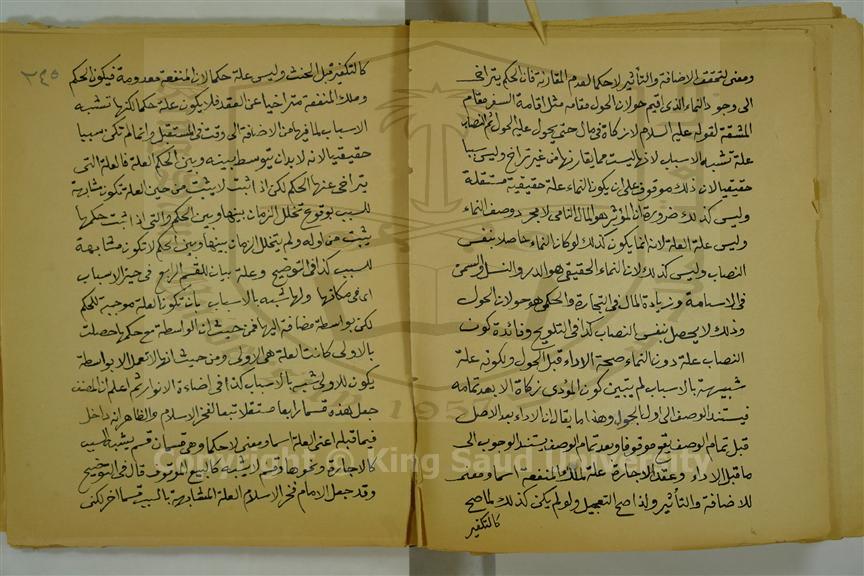 ومعنى لتحقق الاضافة والتأثير لاحكما لعدم المقارنة فان الحكم يتراخى
الى وجود النماء الذى اقيم حولان الحول مقامه مثل اقامة السفر مقام
المشقة لقوله عليه السلام لا زكاة فى مال حتى يحول عليه الحول ثم النصاب
علة تشبه الاسباب لانها ليست مما يقارنها من غير تراخ وليس سببا
حقيقيا لان ذلك موقوف على ان يكون النماء علة حقيقية مستقلة
وليس كذلك ضرورة ان المؤثر هو المال النامى لا مجرد وصف النماء
وليس علة العلة لانه انما يكون كذلك لو كان النماء حاصلا بنفس
النصاب وليس كذلك لان النماء الحقيقى هو الدر والنسل والسمن
فى الاسامة وزيادة المال فى التجارة والحكمى هو حولان الحول
وذلك لا يحصل بنفس النصاب كذا فى التلويح وفائدة كون
النصاب علة دون النماء صحة الاداء قبل الحول ولكونه علة
شبيهة بالاسباب لم يتبين كون المؤدى زكاة الا بعد تمامه
فيستند الوصف الى اول الحول وهذا ما يقال ان الاداء بعد الاصل
قبل تمام الوصف يقع موقوفا وبعد تمام الوصف يستند الوجوب الى
ما قبل الاداء وعقد الاجارة علة لملك المنفعة اسما ومعنى
للاضافة والتأثير ولذا صح التعجيل ولو لم يكن كذلك لما صح
كالتكفير
٢٤٥
كالتكفير قبل الحنث وليس علة حكما لان المنفعة معدومة فيكون الحكم
وملك المنفعة متراخيا عن العقد فلا يكون علة حكما لكنها تشبه
الاسباب لما فيها من الاضافة الى وقت فى المستقبل وانما لم تكن سببا
حقيقيا لانه لا بد ان يتوسط بينه وبين الحكم العلة فالعلة التى
يتراخى عنها الحكم لكن اذا ثبت لا يثبت من حين العلة تكون مشابهة
للسبب بوقوع تخلل الزمان بينها وبين الحكم والتى اذا ثبت حكمها
يثبت من اوله ولم يتخلل الزمان بينها وبين الحكم لا تكون مشابهة
للسبب كذا فى التوضيح وعلة بيان للقسم الرابع فى حيز الاسباب
اى فى مكانها ولها شبه بالاسباب بان تكون العلة موجبة للحكم
لكن بواسطة مضافة اليها فمن حيث ان الواسطة مع حكمها حصلت
بالاولى كانت العلة هى الاولى ومن حيث انها لا تعمل الا بواسطة
يكون للاولى شبه بالاسباب كذا فى اضاءة الانوار ثم اعلم ان المصنف
جعل هذه قسما رابعا مستقلا تبعا لفخر الاسلام والظاهر انه داخل
فيما قبله اعنى العلة اسما ومعنى لا حكما وهى قسمان قسم يشبه السبب
كالاجارة ونحوها وقسم لا يشبه كالبيع الموقوف قال فى التوضيح
وقد جعل الامام فخر الاسلام العلة المشابهة بالسبب قسما اخر لكنى
Copyright © King Saud University